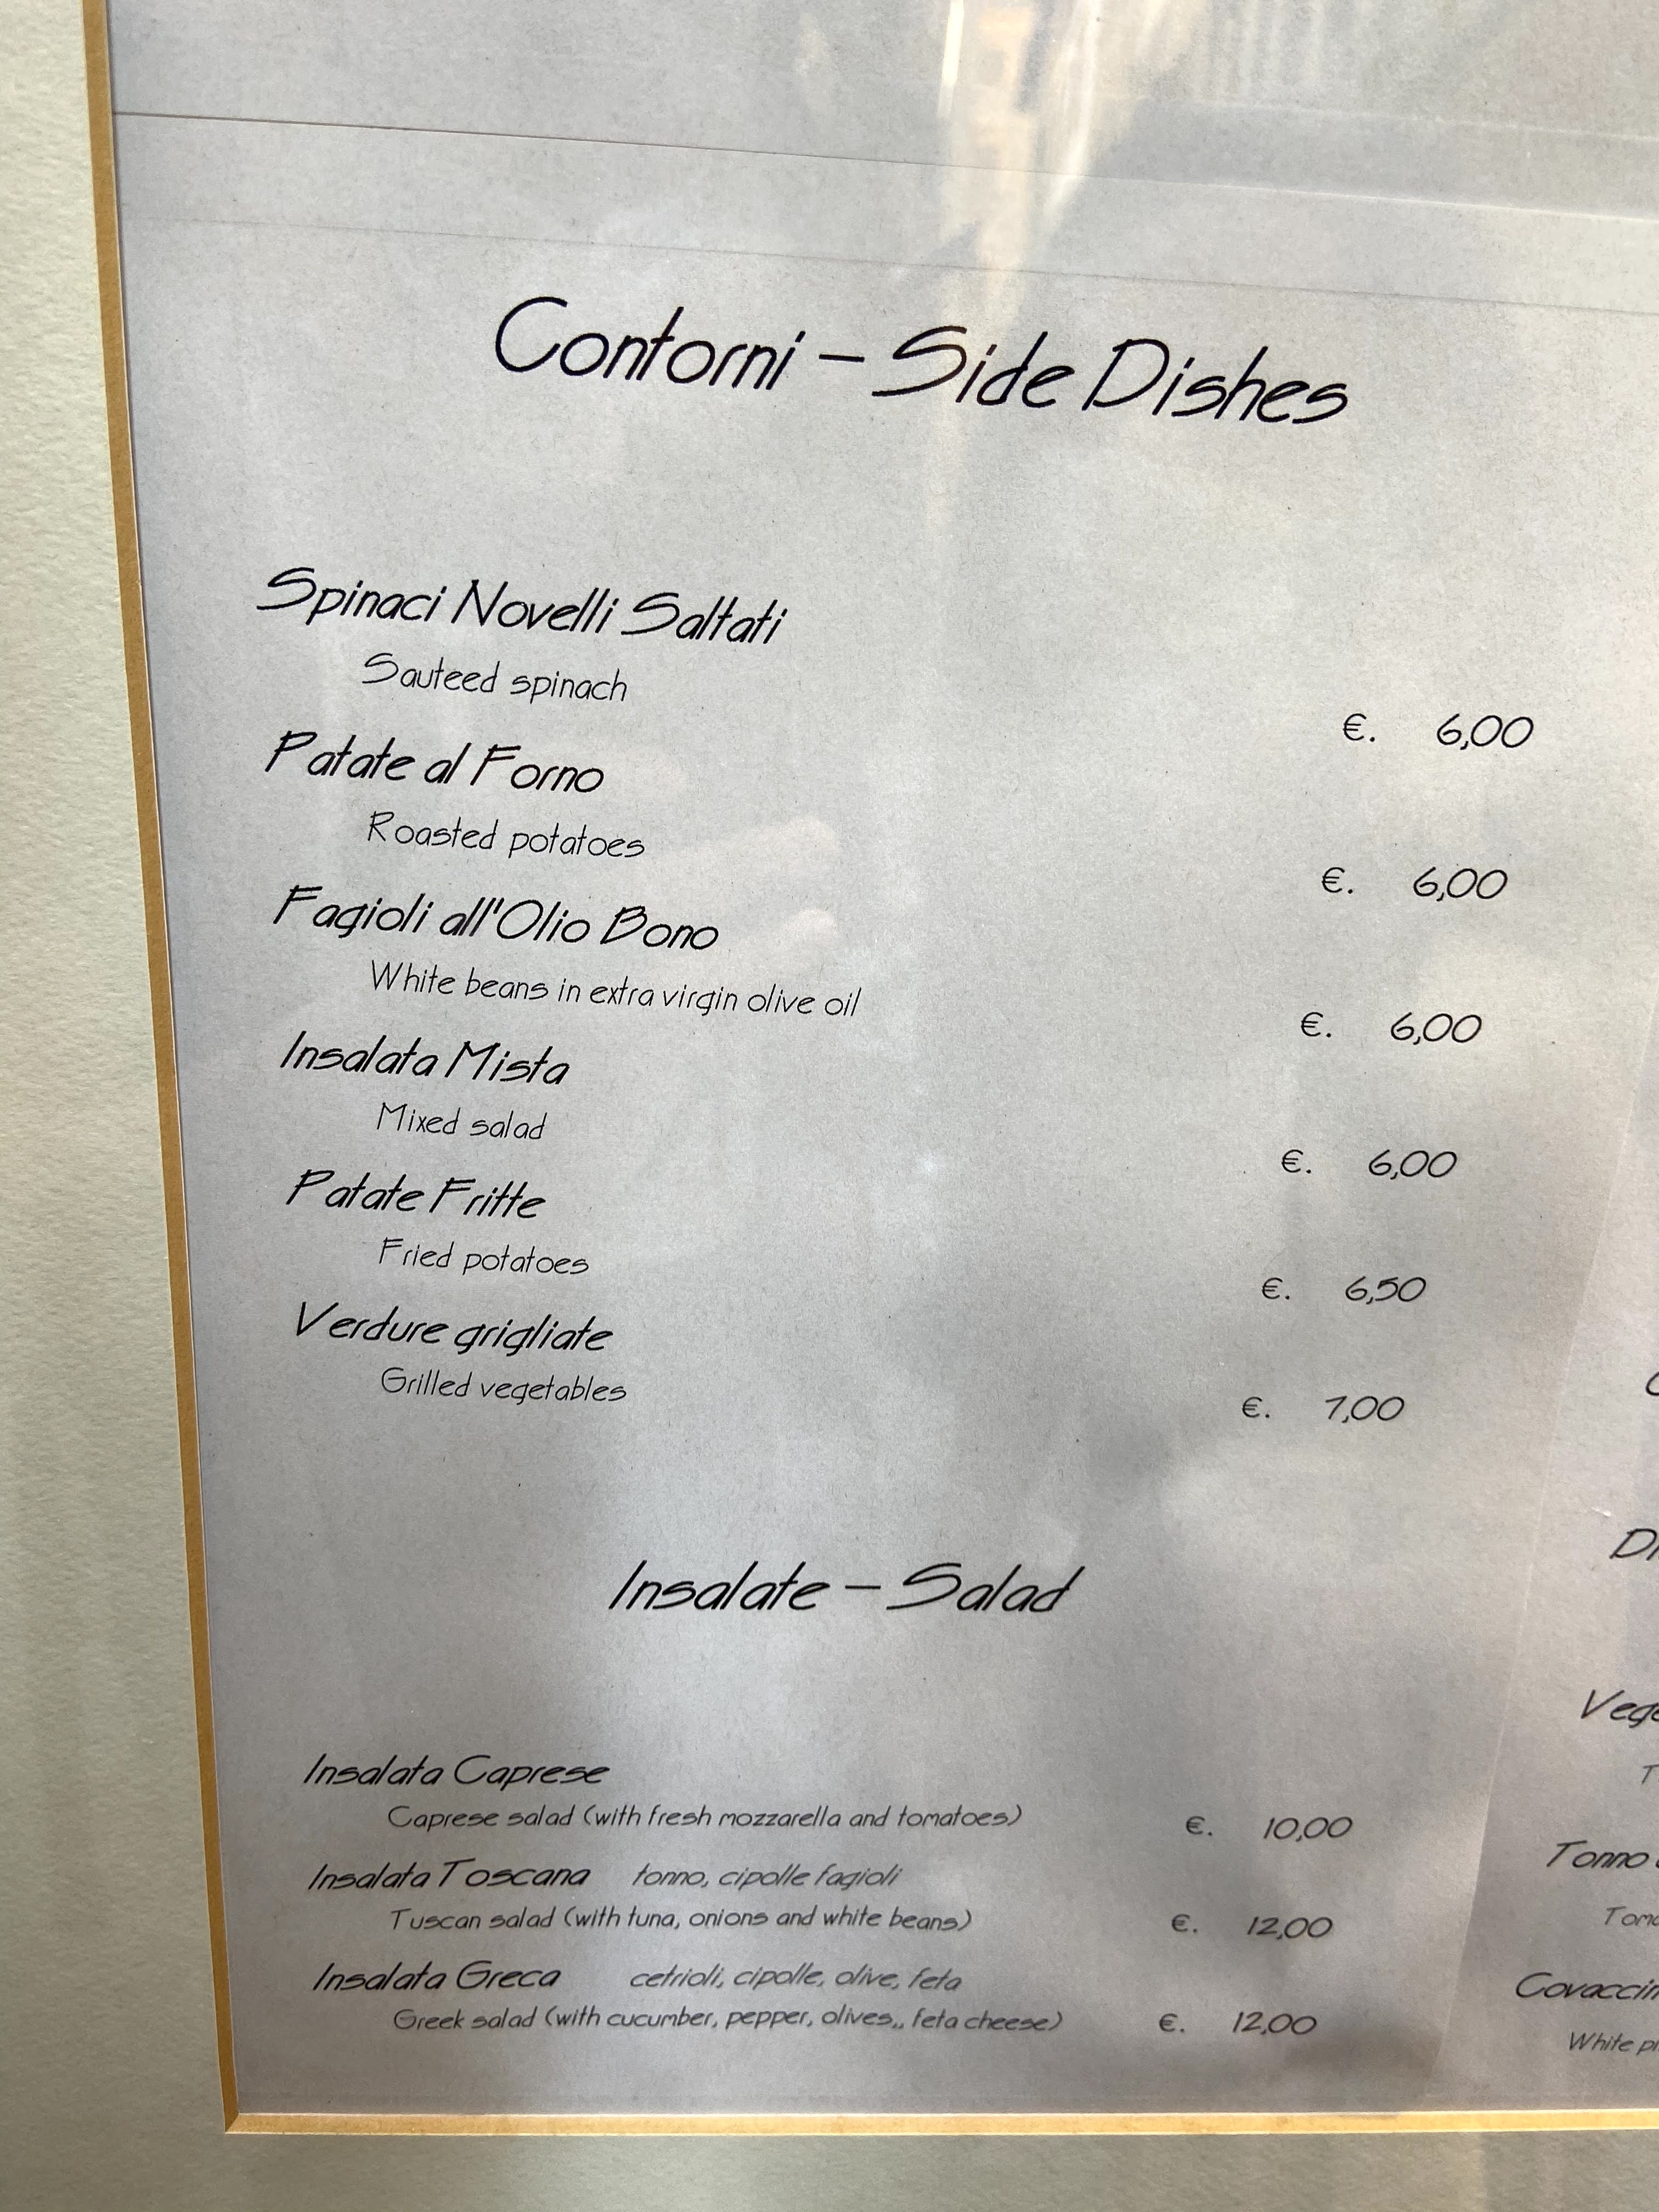 Contorni – Side Dishes
Spinaci Novelli Saltati
Sauteed spinach
€. 6,00
Patate al Forno
Roasted potatoes
€. 6,00
Fagioli all'Olio Bono
White beans in extra virgin olive oil
€. 6,00
Insalata Mista
Mixed salad
€. 6,00
Patate Fritte
Fried potatoes
€. 6,50
Verdure grigliate
Grilled vegetables
€. 7,00
Insalate – Salad
Insalata Caprese
Caprese salad (with fresh mozzarella and tomatoes) €. 10,00
Insalata Toscana tonno, cipolle fagioli
Tuscan salad (with tuna, onions and white beans) €. 12,00
Insalata Greca cetrioli, cipolle, olive, feta
Greek salad (with cucumber, pepper, olives,, feta cheese) €. 12,00
Tonno
White